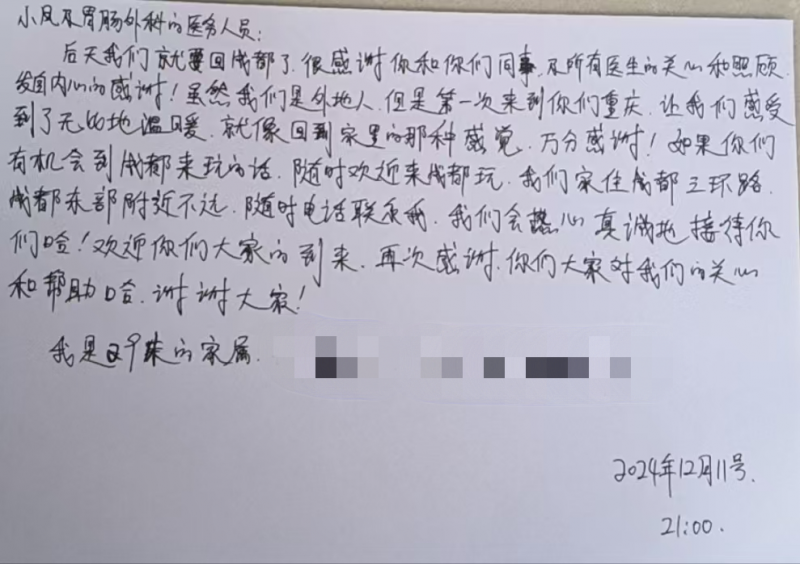 小凤及胃肠外科的医务人员:
后天我们就要回成都了.很感谢你和你们同事.及所有医生的关心和照顾.
发自内心的感谢!虽然我们是外地人.但是第一次来到你们重庆.让我们感受
到了无比地温暖.就像回到家里的那种感觉.万分感谢!如果你们
有机会到成都来玩的话.随时欢迎来成都玩.我们家住成都三环路.
成都东部附近不远.随时电话联系我.我们会热心真诚地接待你
们哈!欢迎你们大家的到来.再次感谢.你们大家对我们的关心
和帮助哈.谢谢大家!
我是29床的家属.
2024年12月11号.
21:00.